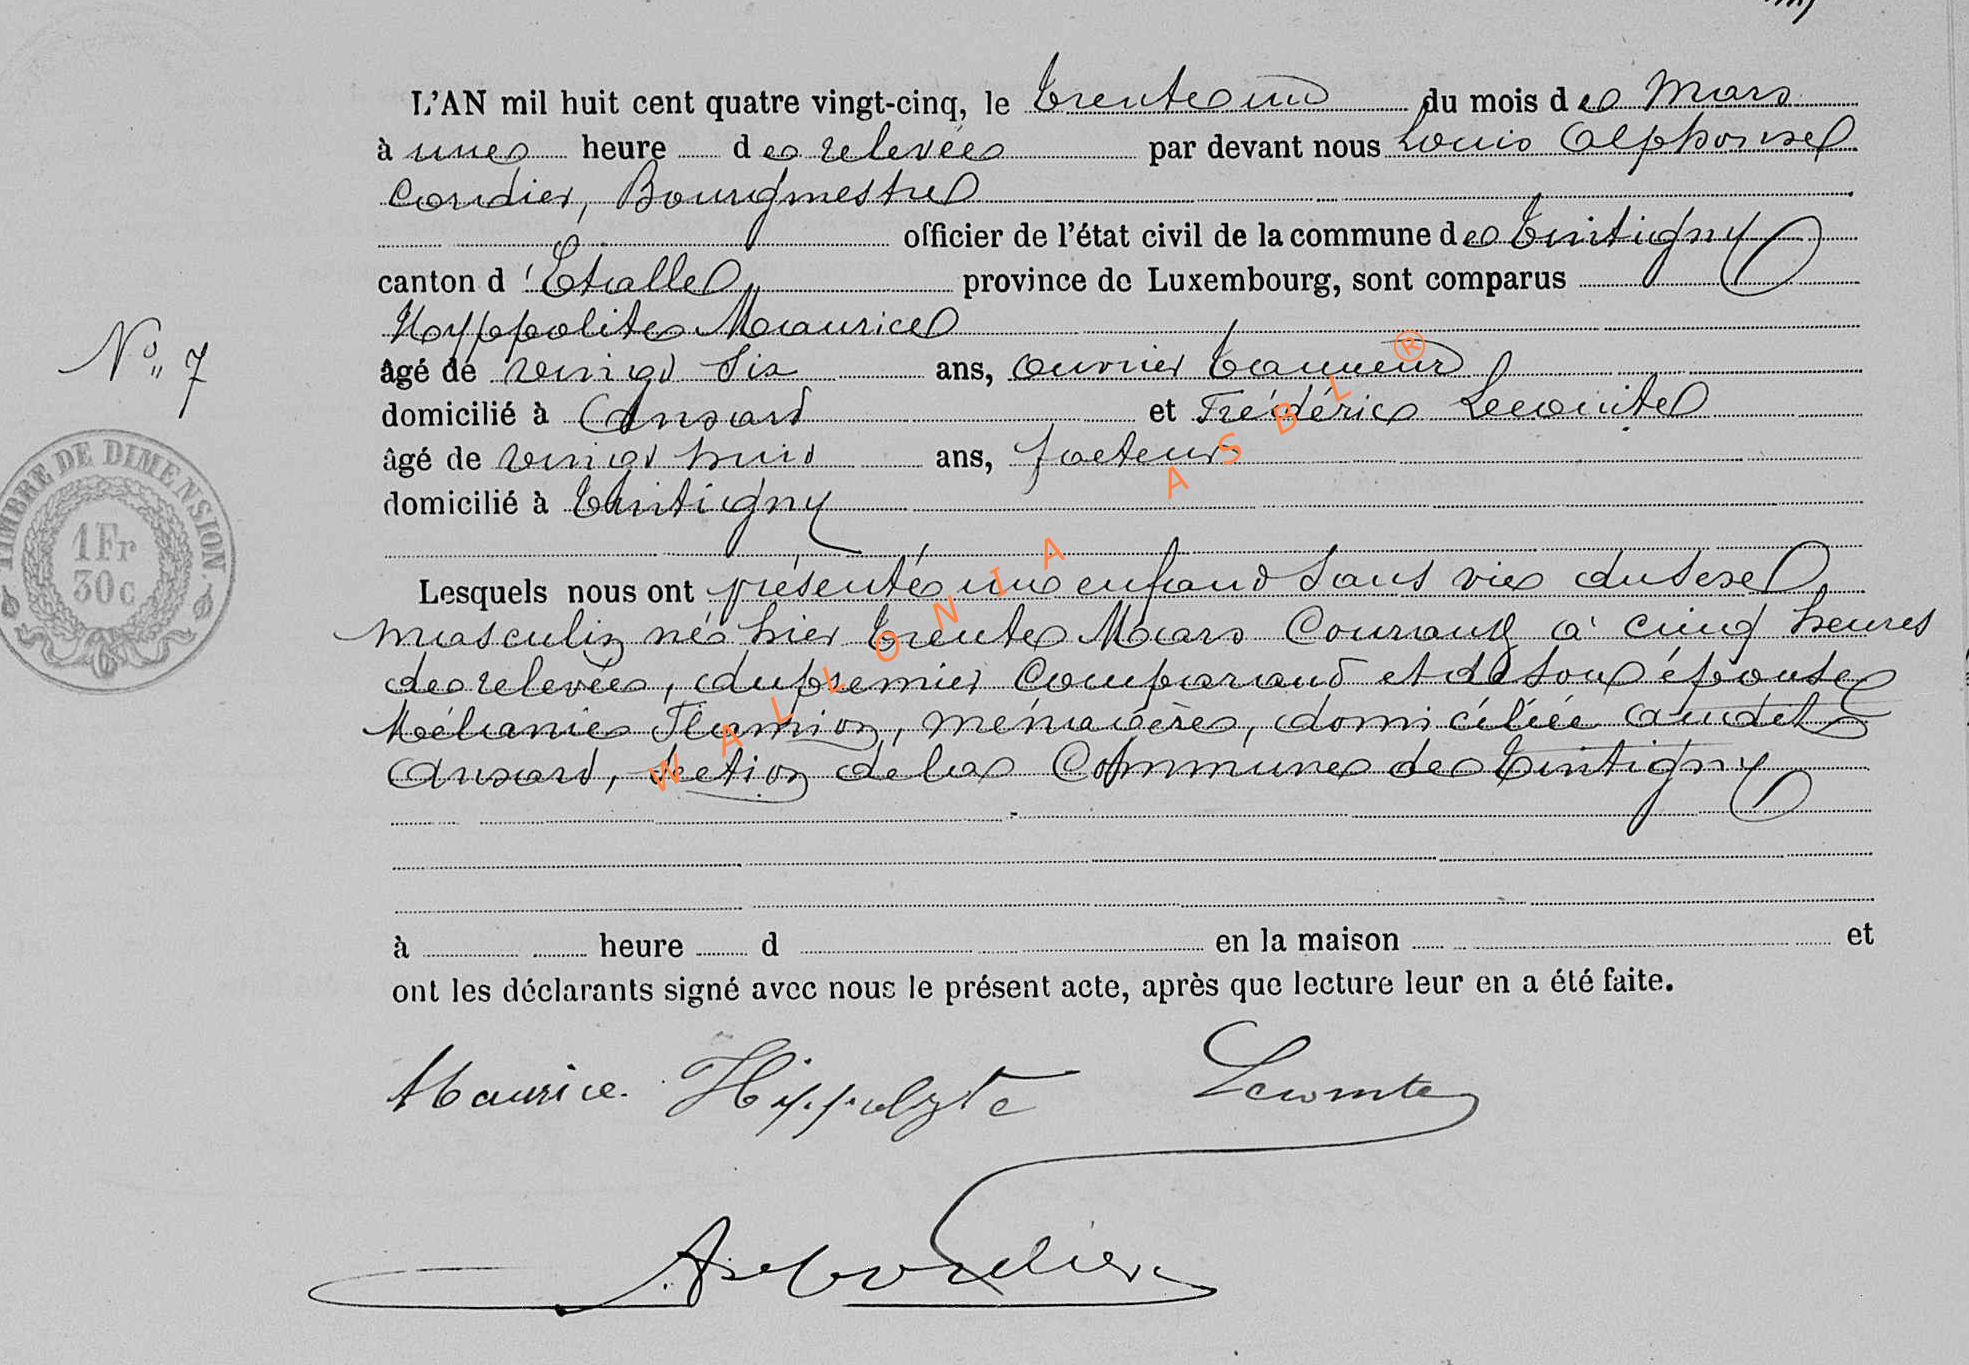 L'AN mil huit cent quatre vingt-cinq, le trente un du mois de Mars
à une heure de relevée par devant nous Louis Alphonse
Cordier, Bourgmestre
officier de l'état civil de la commune de Tintigny
canton d'Etalle province de Luxembourg, sont comparus
Hyppolite Maurice
âgé de vingt six ans, ouvrier tanneur
domicilié à Ansart et Frédéric Lecomte
âgé de vingt huit ans, facteur
domicilié à Tintigny
Lesquels nous ont présenté un enfant sans vie du sexe
masculin né hier trente Mars courant à cinq heures
de relevée, du premier comparant et de son épouse
Mélanie Flamion, ménagère, domiciliée audit
Ansart, section de la Commune de Tintigny
à heure d en la maison et
ont les déclarants signé avec nous le présent acte, après que lecture leur en a été faite.
Maurice Hippolyte Lecomte
Cordier
No 7
TIMBRE DE DIMENSION
1Fr
30c
WALLONIA ASBL ®